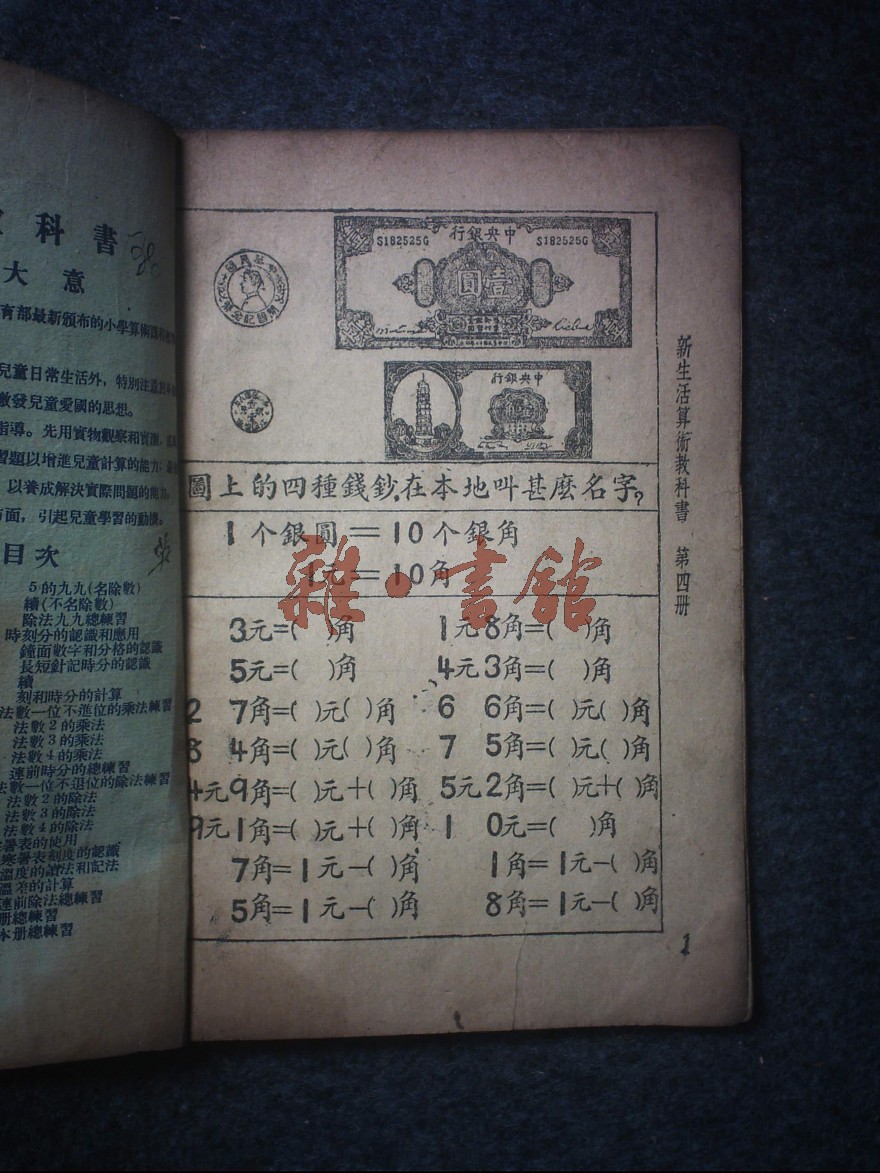 科書
大意
育部最新頒布的小學算術課
兒童日常生活外，特別注意
激發兒童愛國的思想。
指導。先用實物觀察和實測，
習題以增進兒童計算的能力；
以養成解決實際問題的能力。
方面，引起兒童學習的動機。
目次
5的九九(名除數)
續(不名除數)
除法九九總練習
時刻分的認識和應用
鐘面數字和分格的認識
長短針記時分的認識
續
刻和時分的計算
法數一位不進位的乘法練習
法數2的乘法
法數3的乘法
法數4的乘法
連前時分的總練習
法數一位不退位的除法練習
法數2的除法
法數3的除法
法數4的除法
寒暑表的使用
寒暑表刻度的認識
溫度的讀法和記法
溫差的計算
連前除法總練習
册總練習
本册總練習
行銀央中
S182525G S182525G
圓壹
行銀央中
圖上的四種錢鈔,在本地叫甚麽名字?
1个銀圓=10个銀角
1元=10角
3元=( )角 1元8角=( )角
5元=( )角 4元3角=( )角
2 7角=( )元( )角 6 6角=( )元( )角
8 4角=( )元( )角 7 5角=( )元( )角
4元9角=( )元+( )角 5元2角=( )元+( )角
9元1角=( )元+( )角 1 0元=( )角
7角=1元-( )角 1角=1元-( )角
5角=1元-( )角 8角=1元-( )角
新生活算術教科書 第四册
1
雜·書館